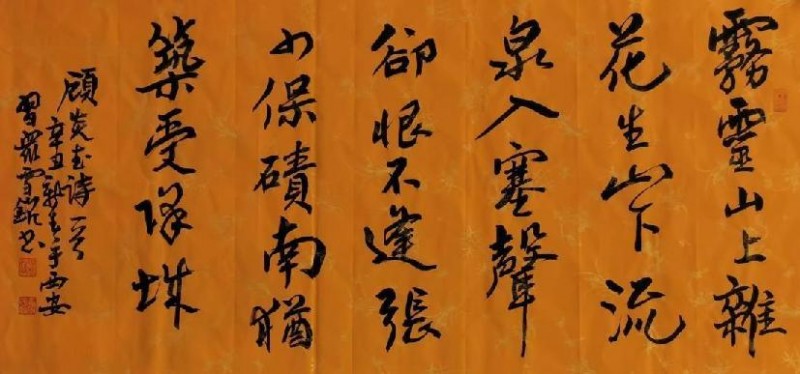 霧靈山上雜
花生山下流
泉入塞聲
卻恨不逢張
少保磧南猶
築受降城
顧炎武詩一首
辛丑新春于西安
雪書